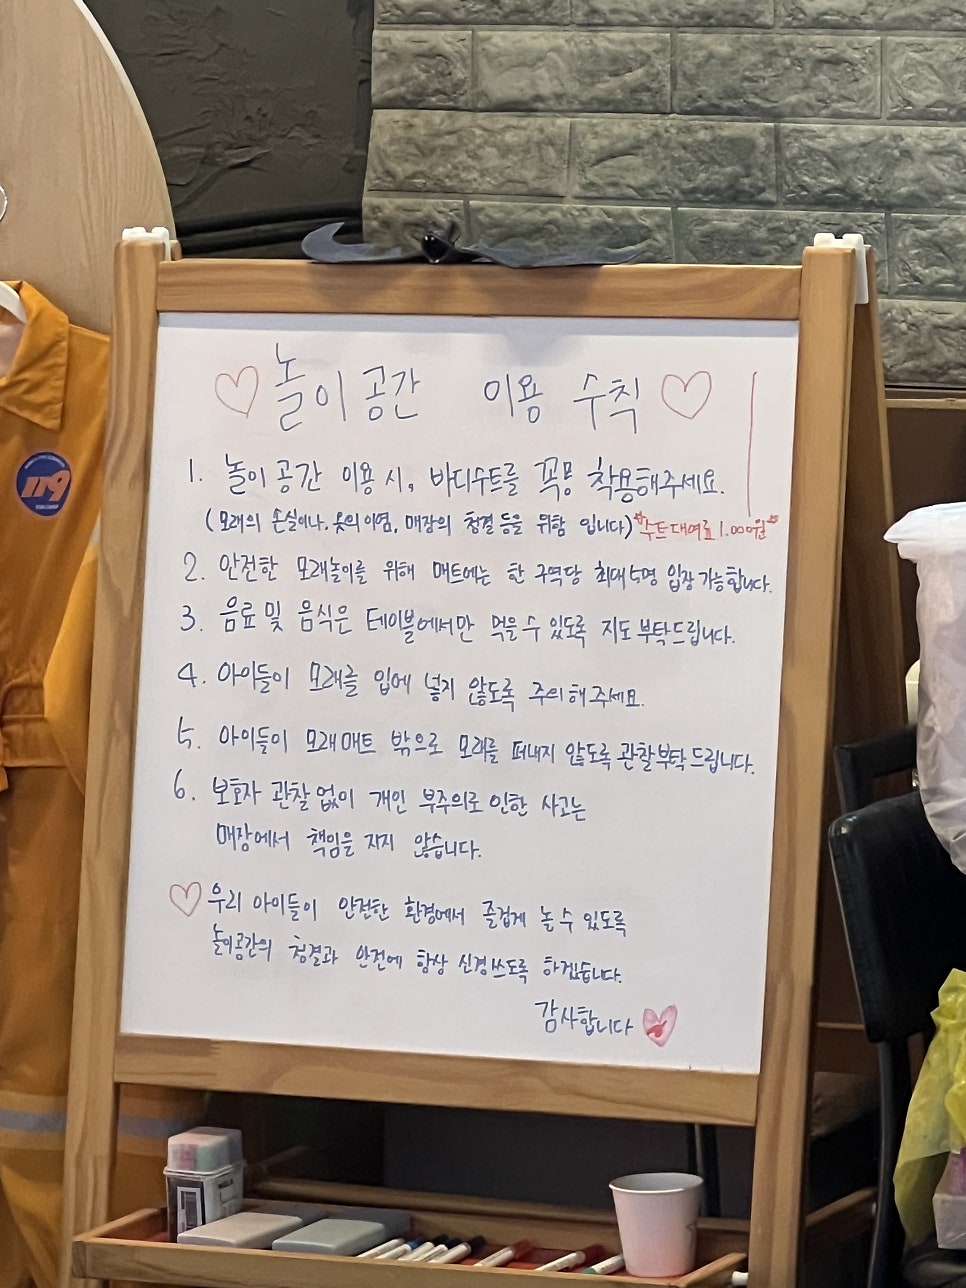 놀이공간 이용 수칙
1. 놀이 공간 이용 시, 바디수트를 꼭 착용해주세요.
(모래의 손실이나, 옷의 이염, 매장의 청결 등을 위함 입니다) *수트 대여료 1,000원*
2. 안전한 모래놀이를 위해 매트에는 한 구역당 최대 5명 입장 가능합니다.
3. 음료 및 음식은 테이블에서만 먹을 수 있도록 지도 부탁드립니다.
4. 아이들이 모래를 입에 넣지 않도록 주의해주세요.
5. 아이들이 모래매트 밖으로 모래를 퍼내지 않도록 관찰부탁드립니다.
6. 보호자 관찰 없이 개인 부주의로 인한 사고는
매장에서 책임을 지지 않습니다.
우리 아이들이 안전한 환경에서 즐겁게 놀 수 있도록
놀이공간의 청결과 안전에 항상 신경쓰도록 하겠습니다.
감사합니다
119